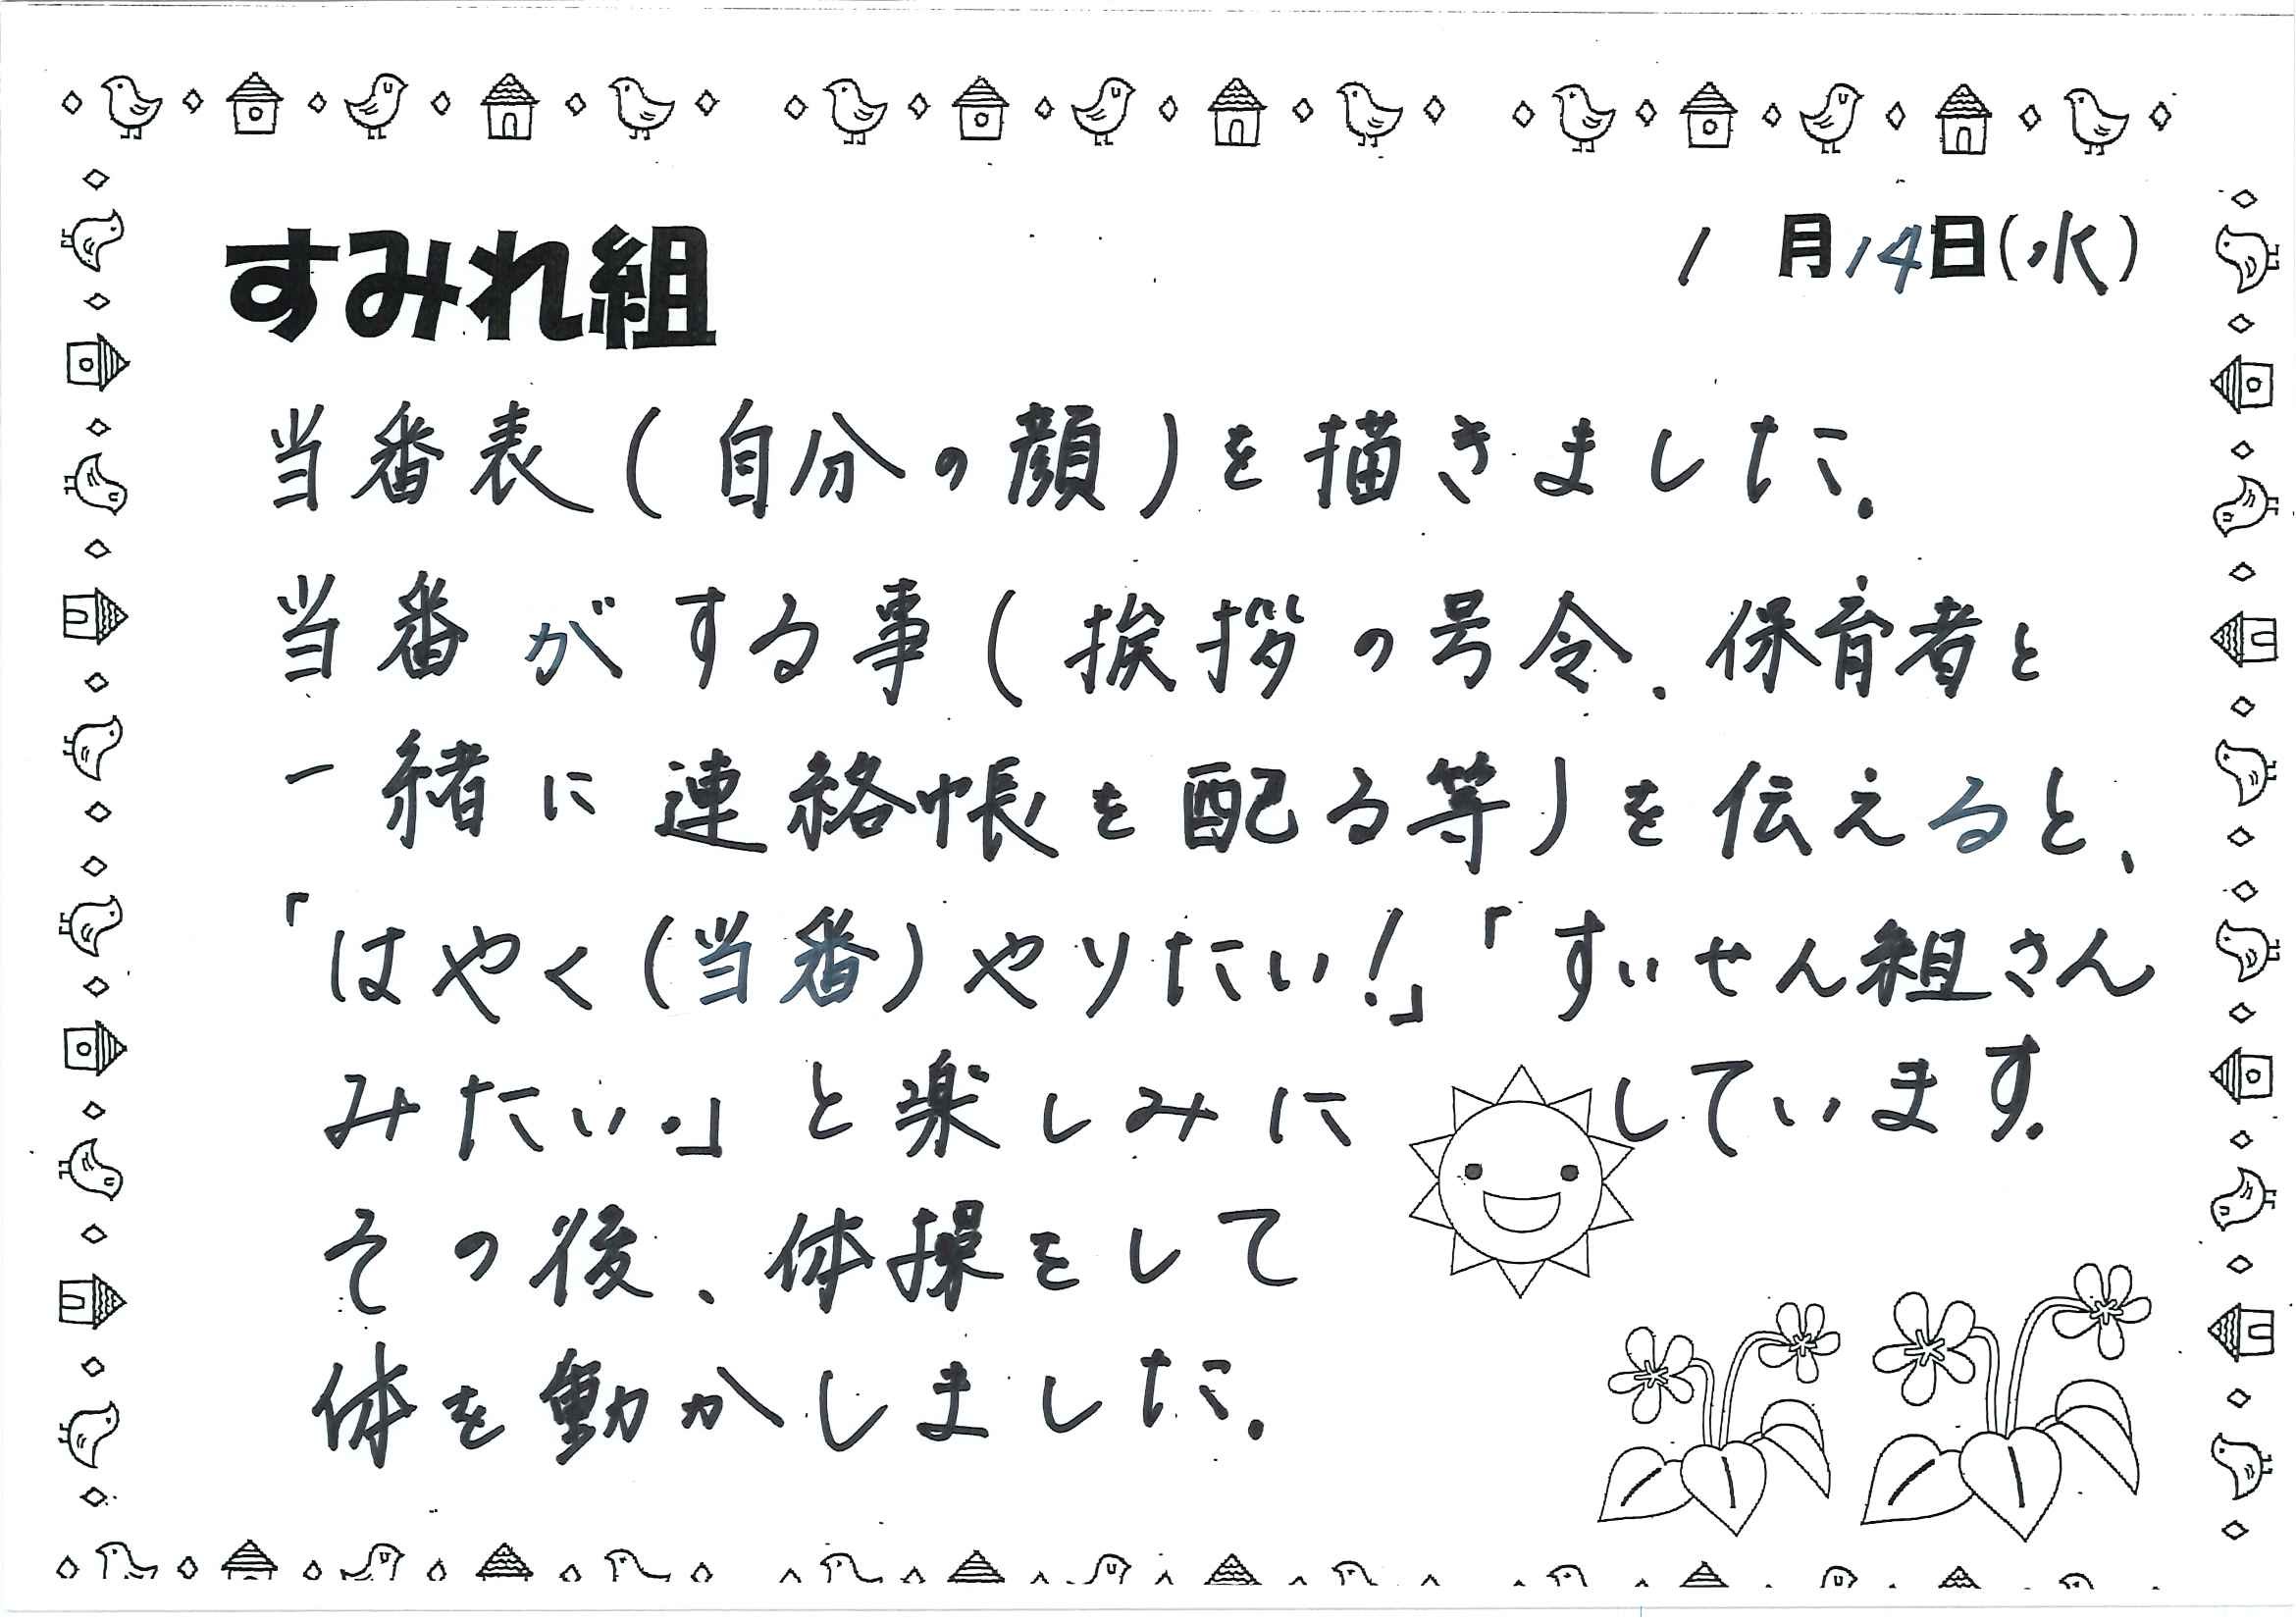 すみれ組
1月14日(水)
当番表(自分の顔)を描きました。
当番がする事(挨拶の号令、保育者と
一緒に連絡帳を配る等)を伝えると、
「はやく(当番)やりたい!」「すいせん組さん
みたい。」と楽しみにしています。
その後、体操をして
体を動かしました。